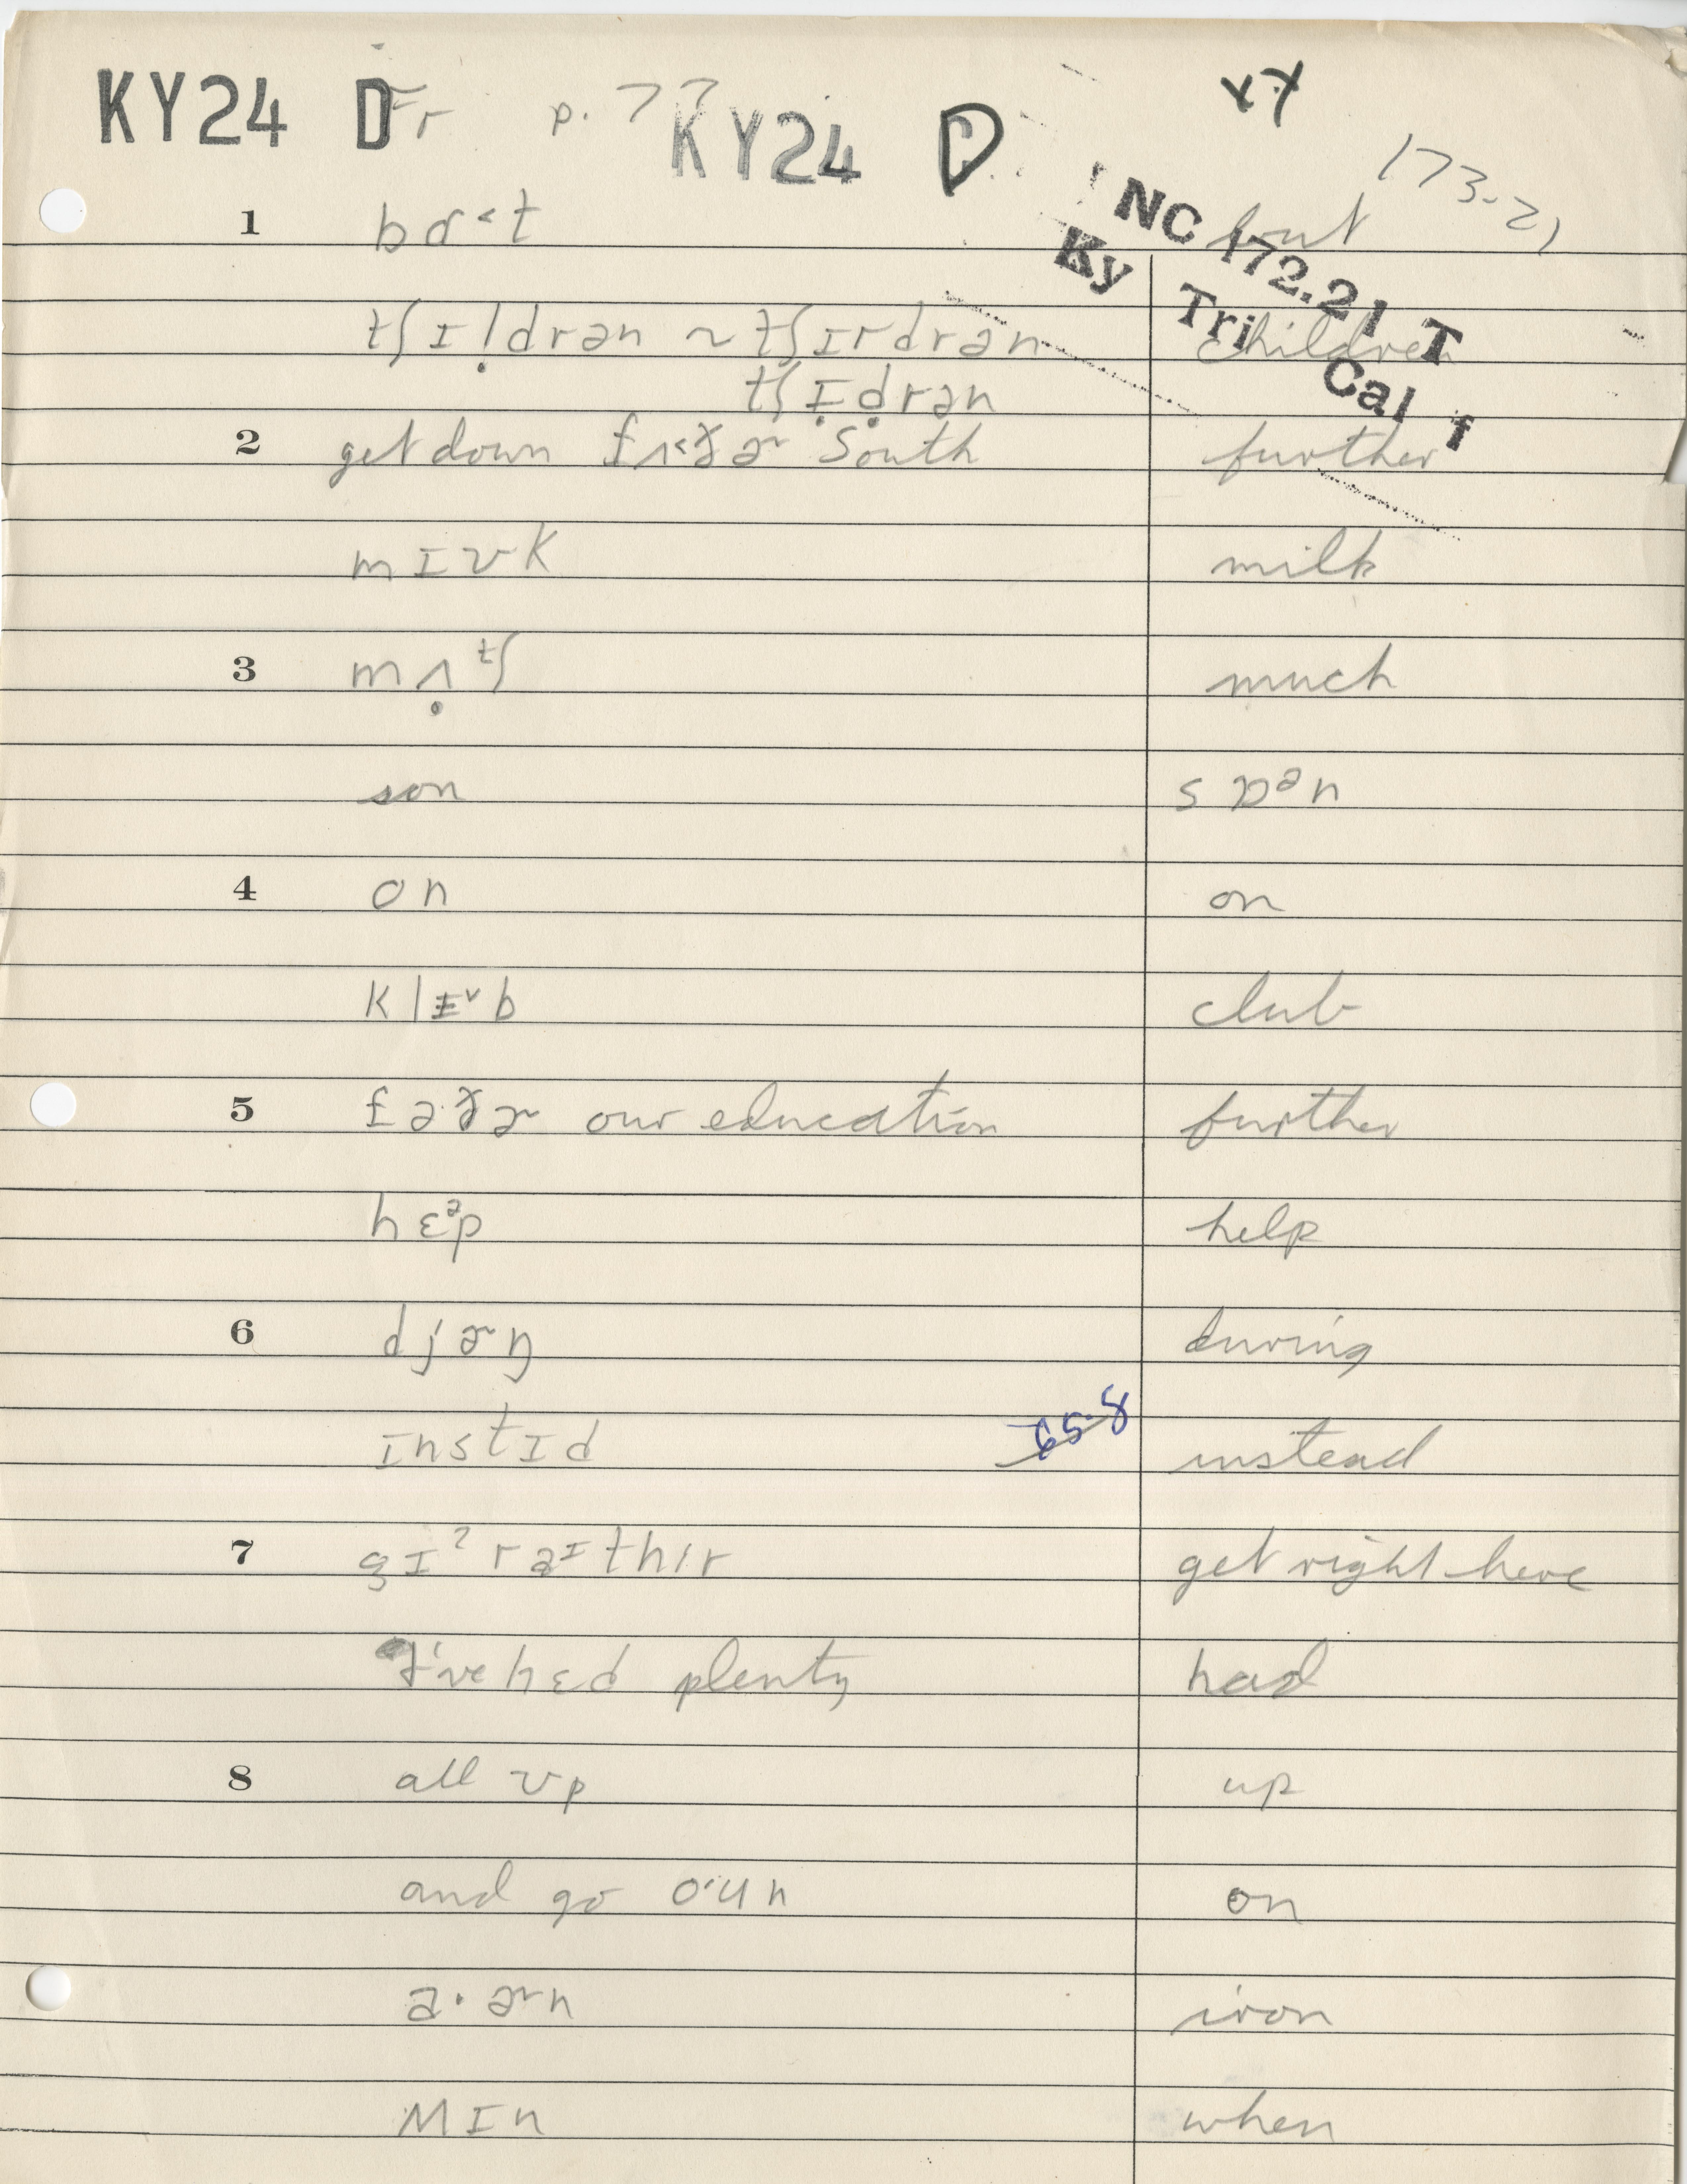 KY24 D Fr p. 77 KY24 D x7
173-21
NC 172.21 T
Ky Tri Cal f
1 bɑ˂t but
tʃɪḷdrən ~ tʃɪrdrən children
tʃɪ̣ḍrən
2 get down fʌ˂ðɚ South further
mɪʊk milk
3 mʌ̣tʃ much
son sɒᵊn
4 on on
klɪ̵˅b club
5 fə·ðɚ our education further
hɛᵊp help
6 djɚŋ during
ɪnstɪd 65.8 instead
7 gɪˀ raᶦthir get right here
I've hɛd plenty had
8 all ʊp up
and go o·un on
a·ɚn iron
ʍɪn when